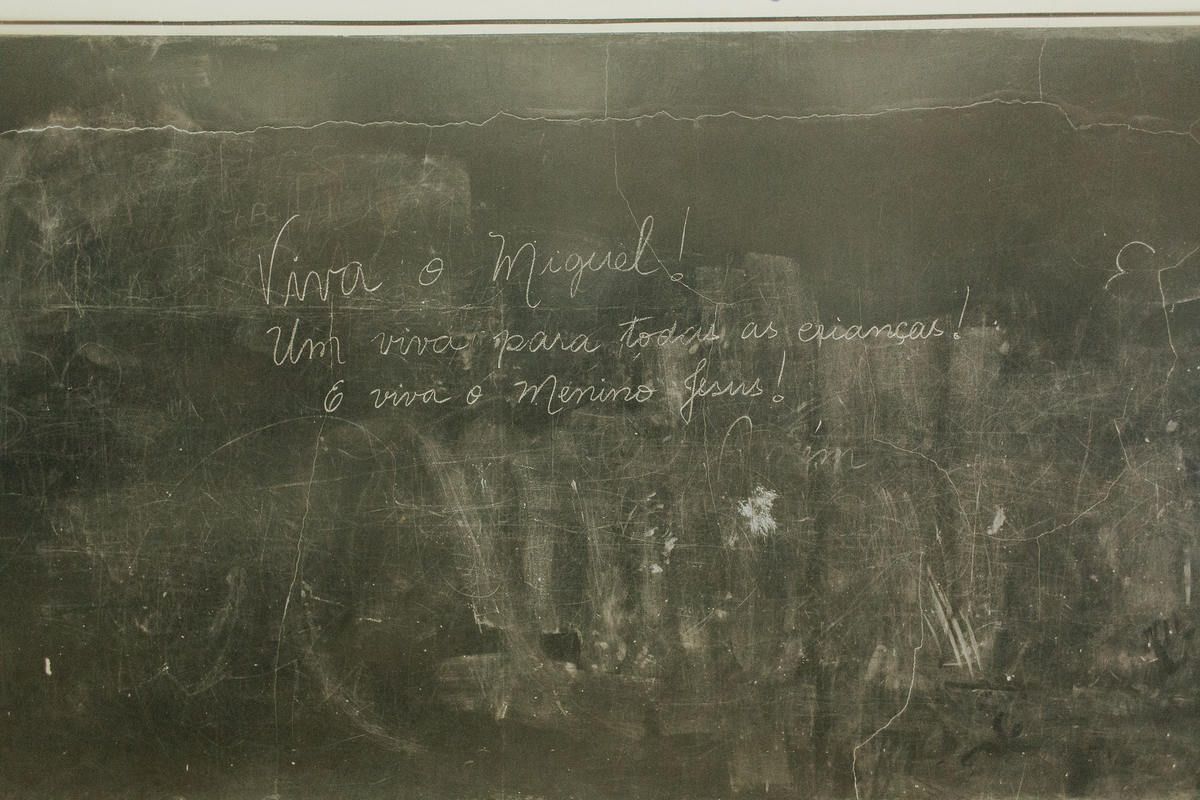 Viva o Miguel!
Um viva para todas as crianças!
E viva o Menino Jesus!